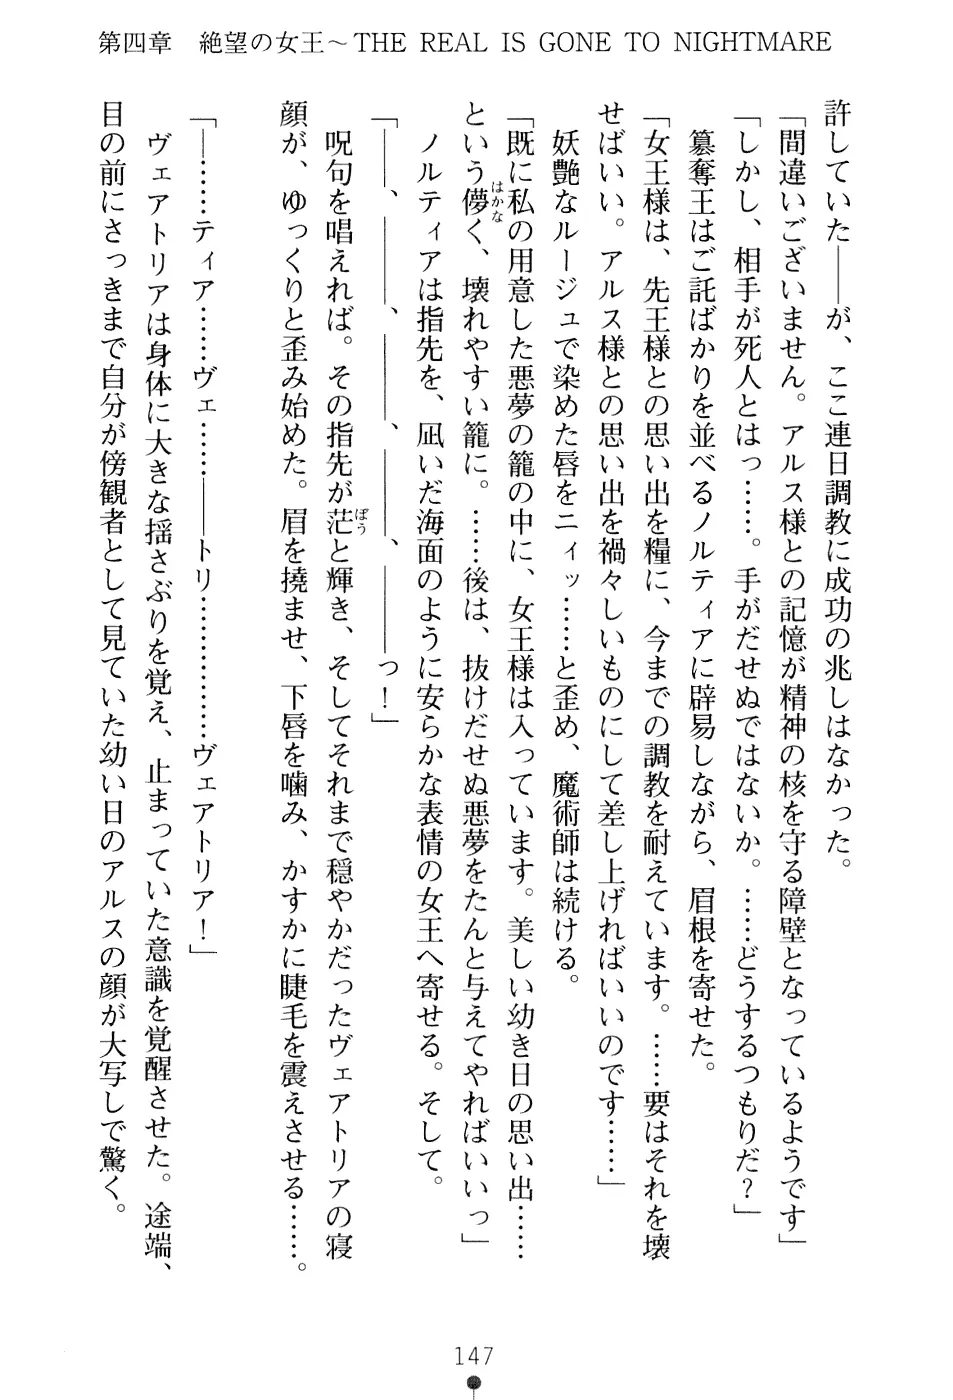 第四章　絶望の女王～THE REAL IS GONE TO NIGHTMARE
許していた――が、ここ連日調教に成功の兆しはなかった。
「間違いございません。アルス様との記憶が精神の核を守る障壁となっているようです」
「しかし、相手が死人とはっ……。手がだせぬではないか。……どうするつもりだ？」
　簒奪王はご託ばかりを並べるノルティアに辟易しながら、眉根を寄せた。
「女王様は、先王様との思い出を糧に、今までの調教を耐えています。……要はそれを壊
せばいい。アルス様との思い出を禍々しいものにして差し上げればいいのです……」
　妖艶なルージュで染めた唇をニィッ……と歪め、魔術師は続ける。
「既に私の用意した悪夢の籠の中に、女王様は入っています。美しい幼き日の思い出……
という儚く、壊れやすい籠に。……後は、抜けだせぬ悪夢をたんと与えてやればいいっ」
　ノルティアは指先を、凪いだ海面のように安らかな表情の女王へ寄せる。そして。
「――、――――、――――、―――っ！」
　呪句を唱えれば。その指先が茫と輝き、そしてそれまで穏やかだったヴェアトリアの寝
顔が、ゆっくりと歪み始めた。眉を撓ませ、下唇を噛み、かすかに睫毛を震えさせる……。
「――……ティア……ヴェ……――トリ………………ヴェアトリア！」
　ヴェアトリアは身体に大きな揺さぶりを覚え、止まっていた意識を覚醒させた。途端、
目の前にさっきまで自分が傍観者として見ていた幼い日のアルスの顔が大写しで驚く。
147